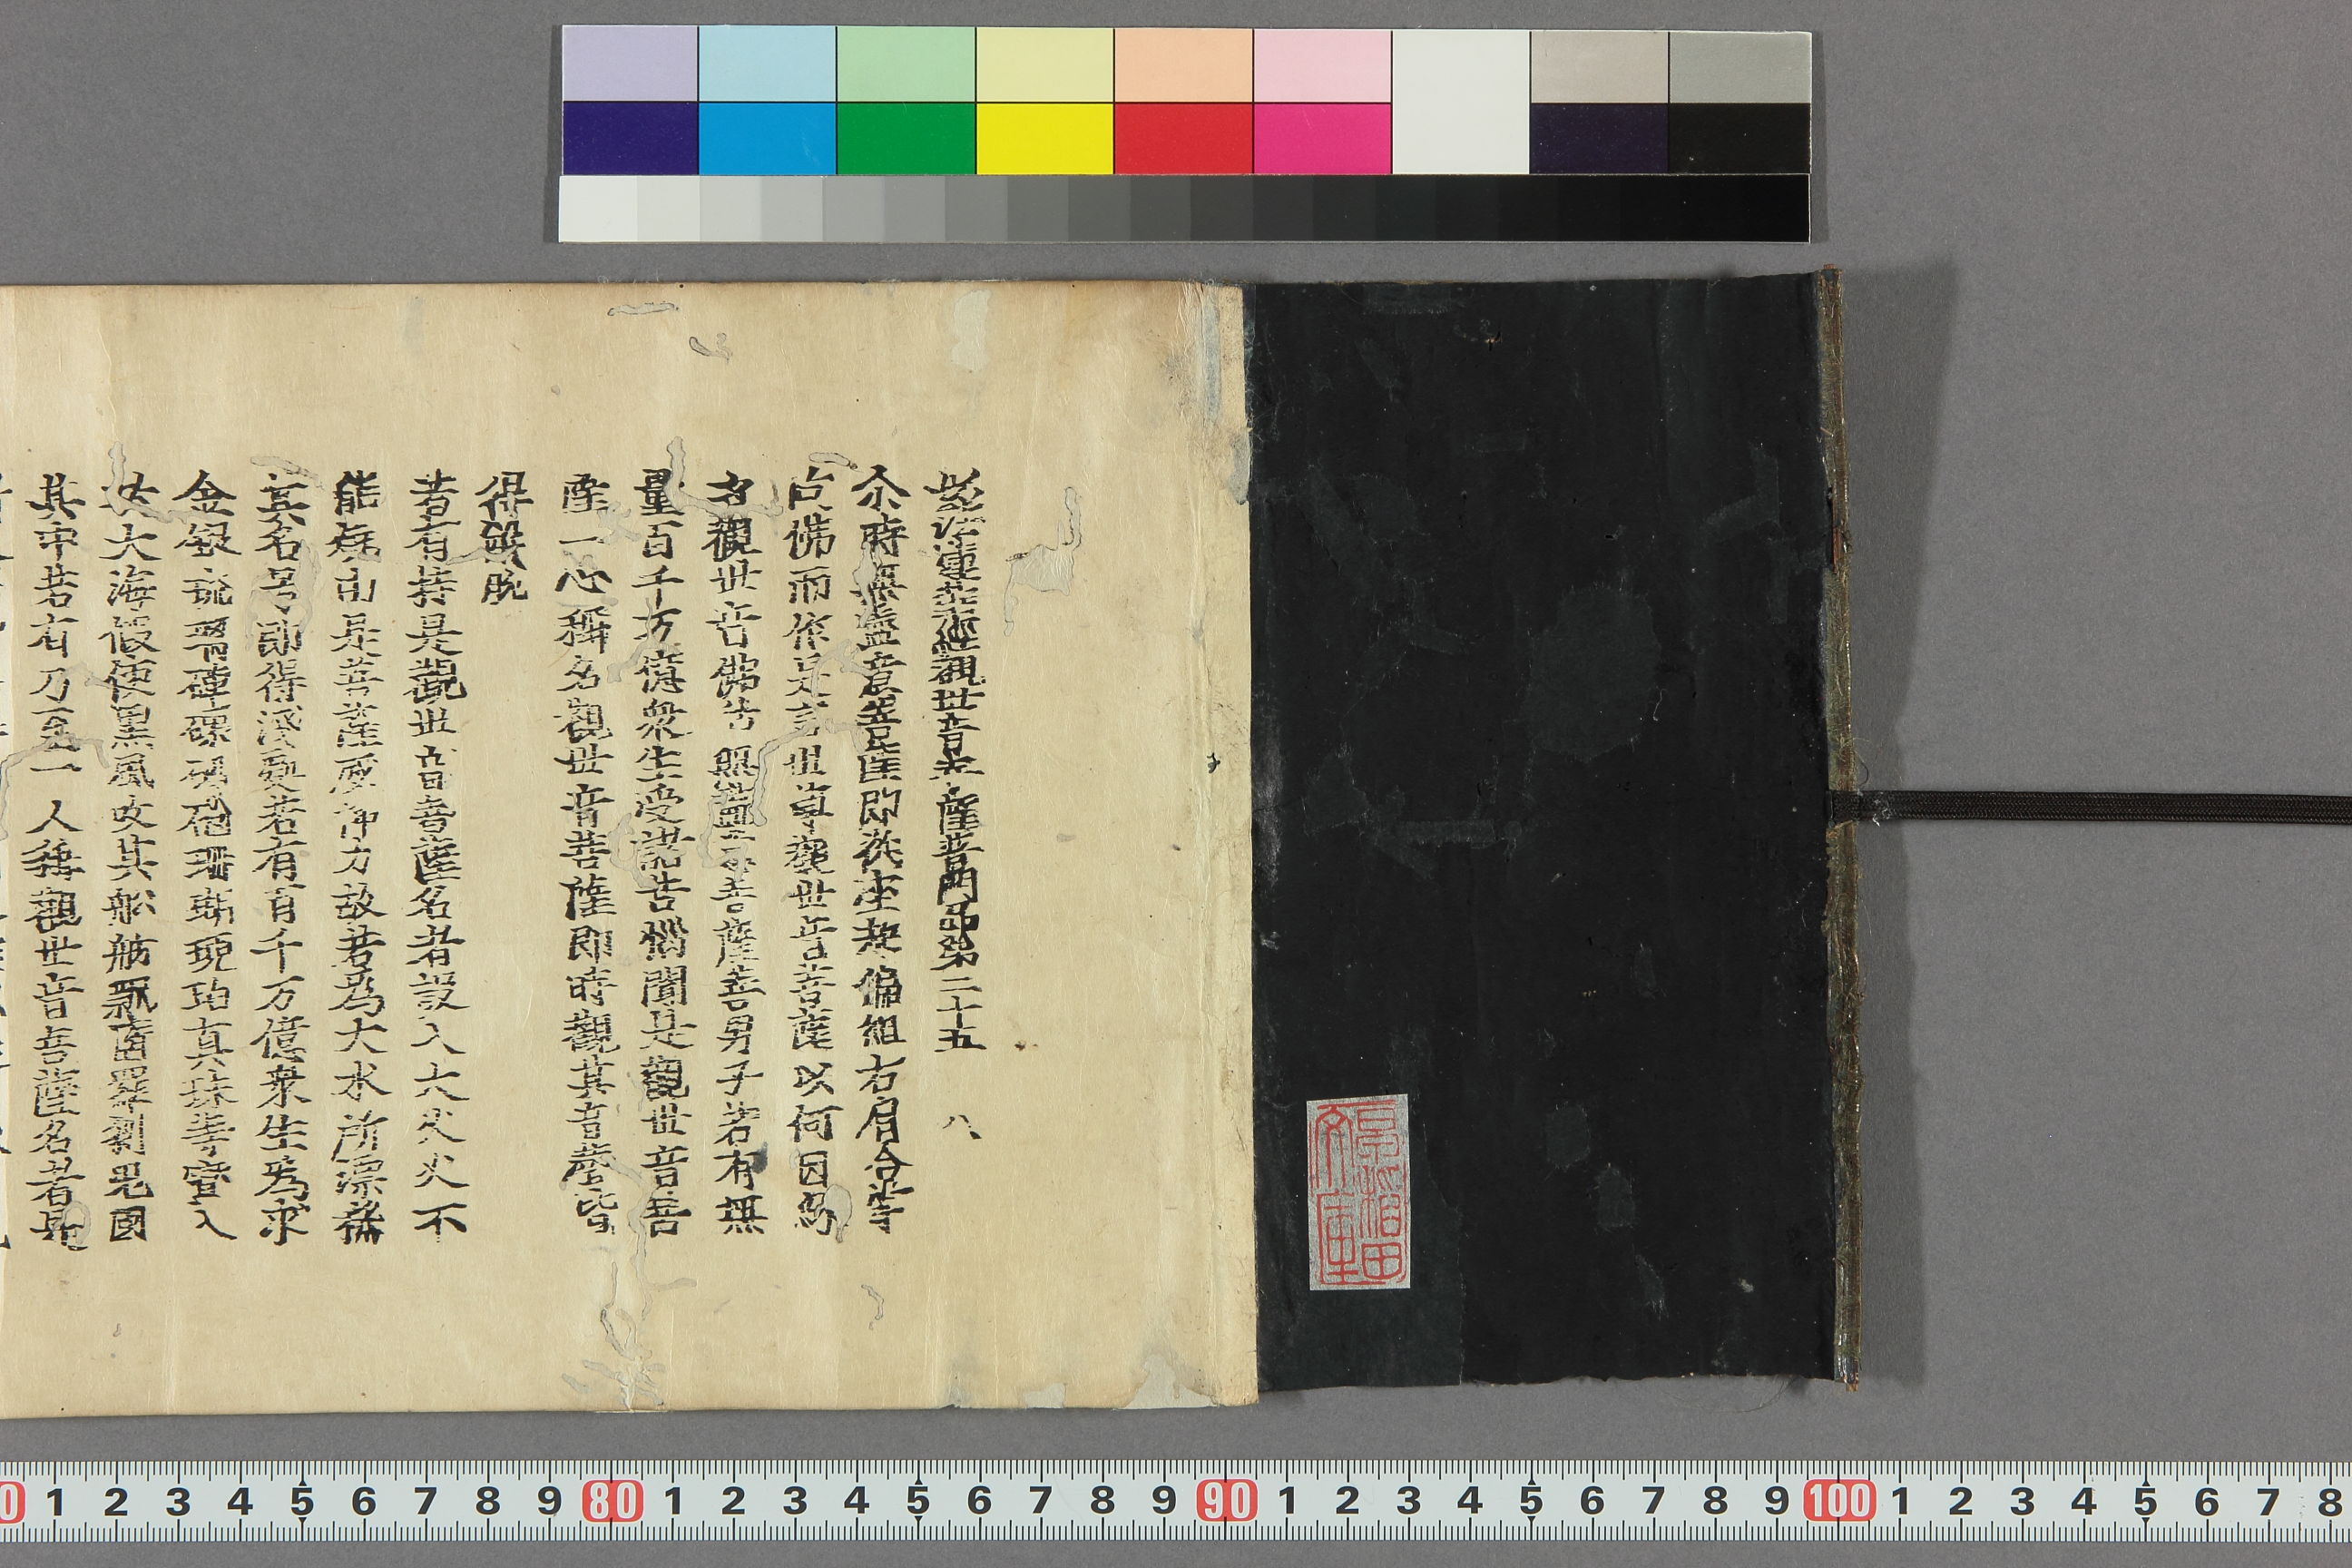 妙法蓮華經觀世音菩薩普門品第二十五 八
尒時無盡意菩薩即從座起偏袒右肩合掌
向佛而作是言世尊觀世音菩薩以何因緣
名觀世音佛告無盡意菩薩善男子若有無
量百千万億衆生受諸苦惱聞是觀世音菩
薩一心稱名觀世音菩薩即時觀其音聲皆
得解脫
若有持是觀世音菩薩名者設入大火火不
能燒由是菩薩威神力故若爲大水所漂稱
其名号即得淺處若有百千万億衆生爲求
金銀琉璃車磲馬碯珊瑚琥珀真珠等寶入
於大海假使黑風吹其舩舫飄堕羅刹鬼國
其中若有乃至一人稱觀世音菩薩名者是
10 1 2 3 4 5 6 7 8 9 80 1 2 3 4 5 6 7 8 9 90 1 2 3 4 5 6 7 8 9 100 1 2 3 4 5 6 7 8